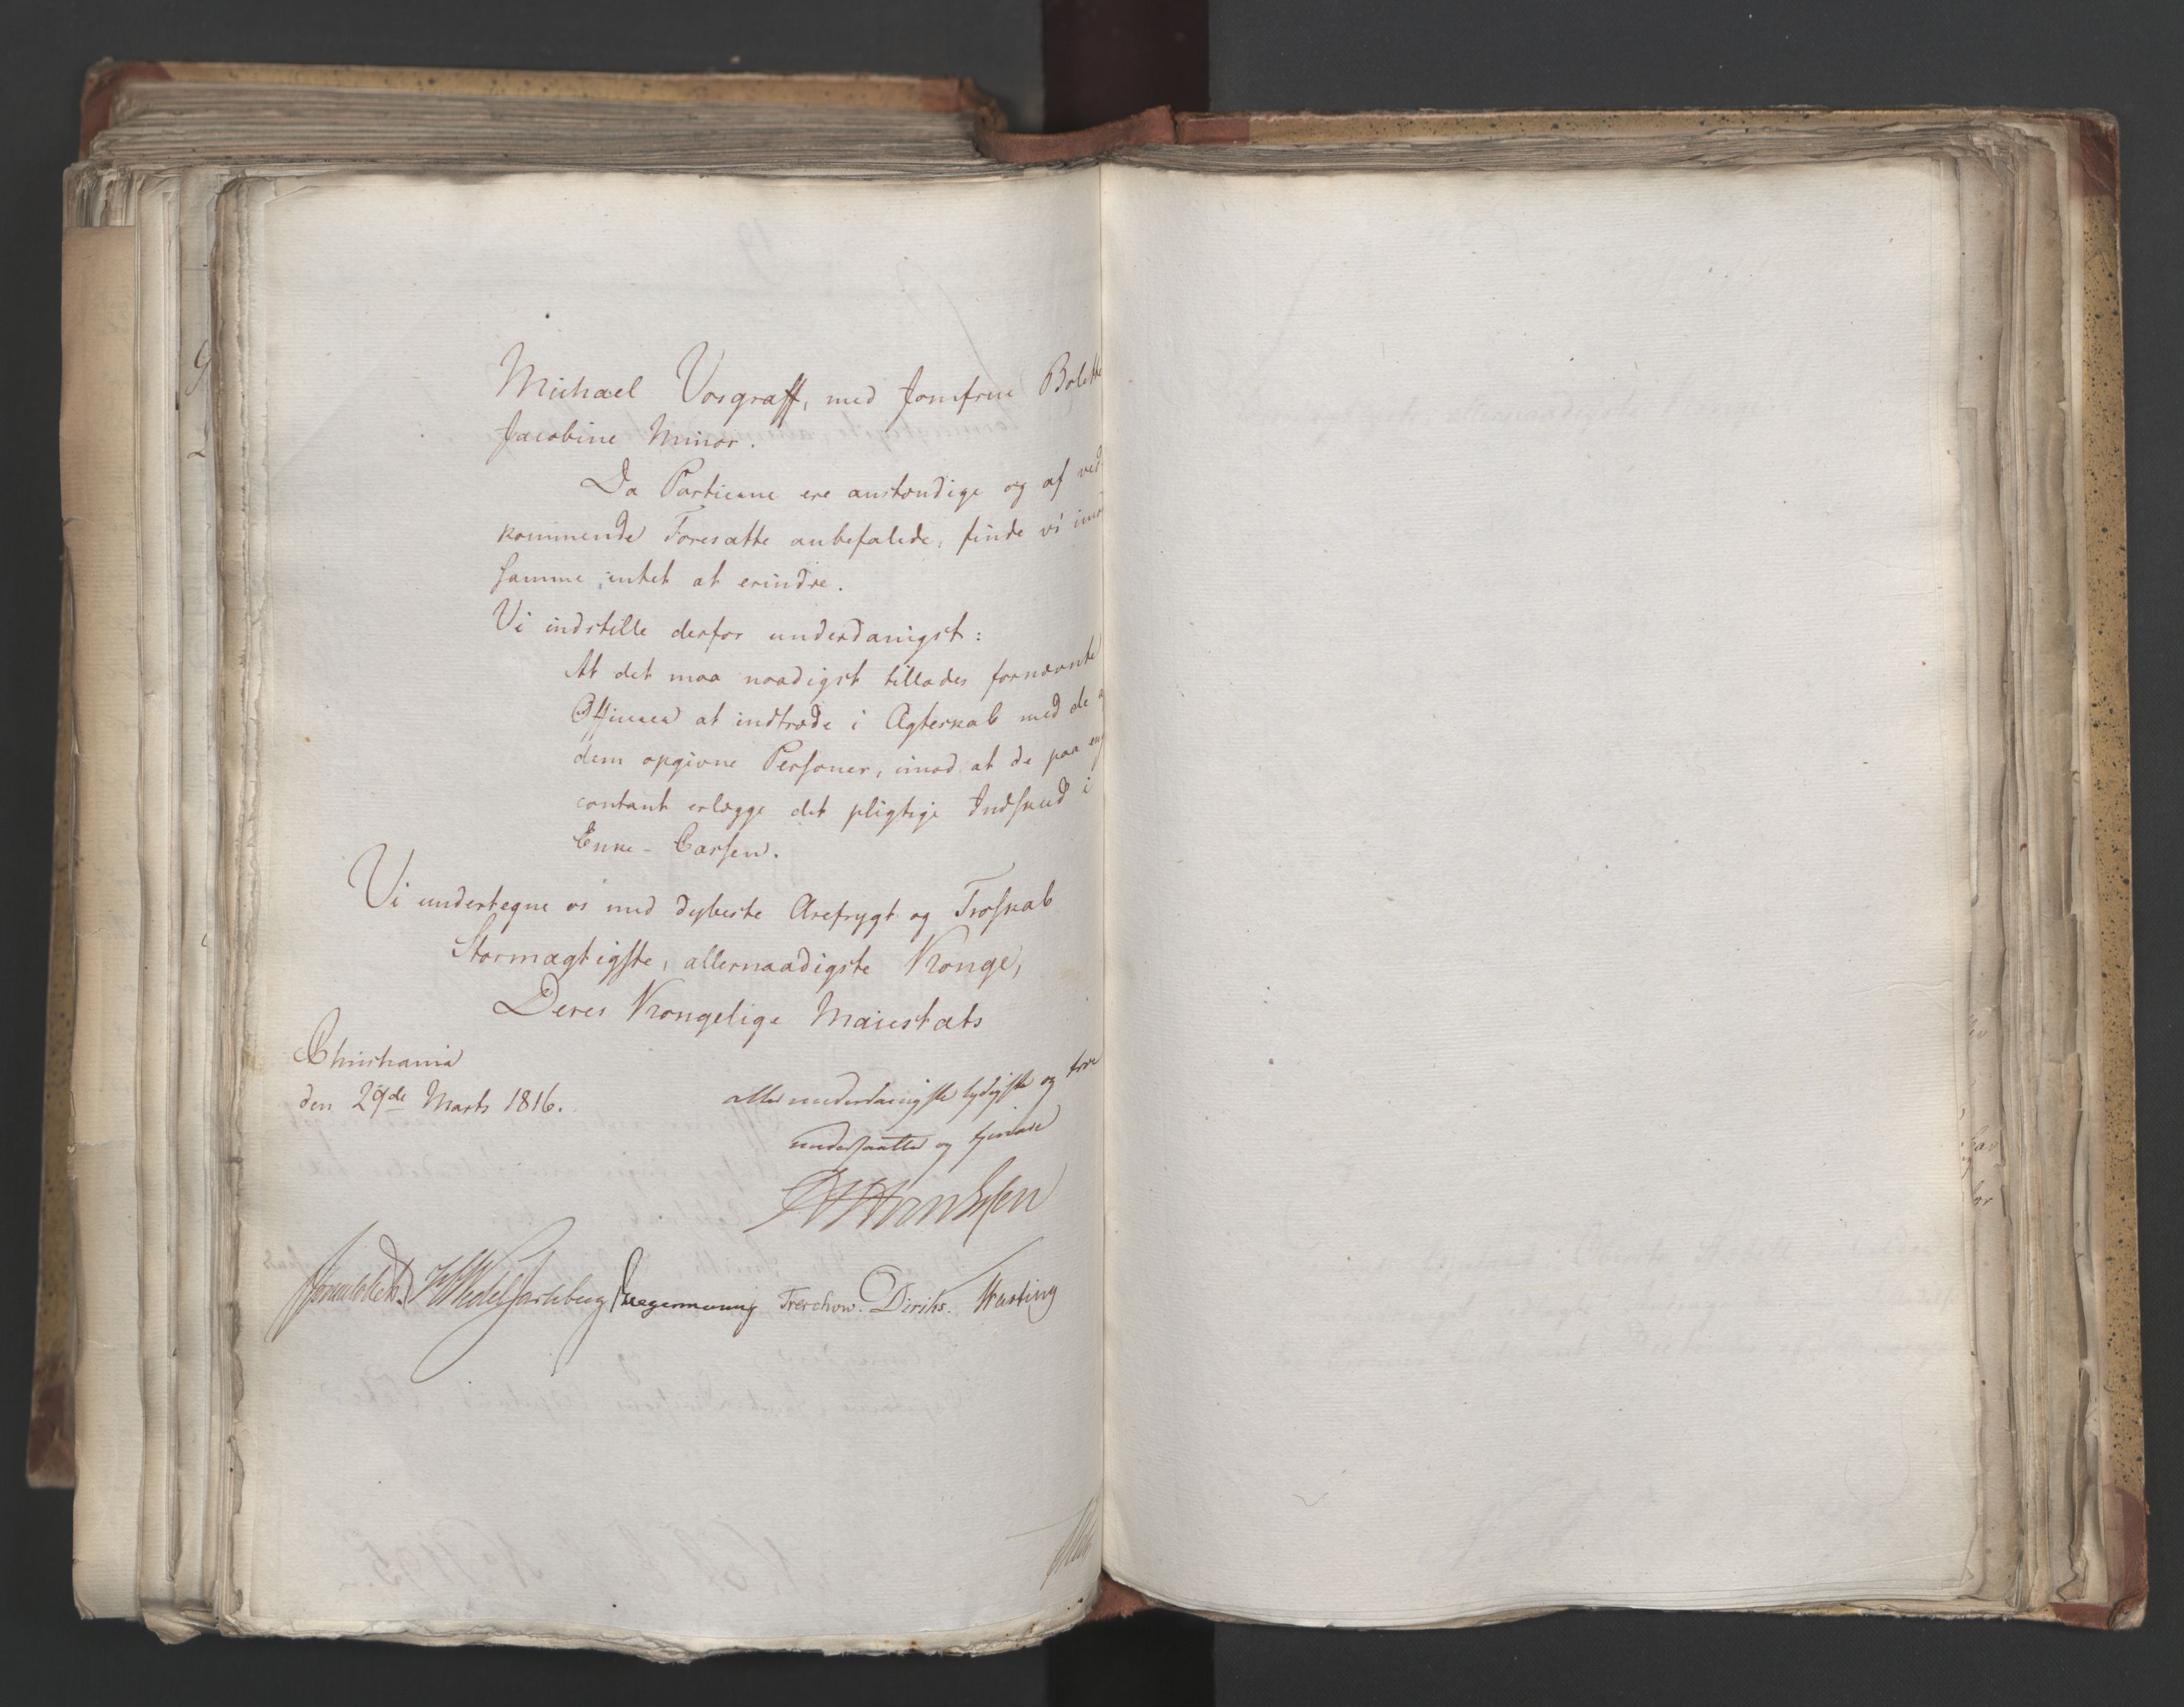 Michael Vosgraff, med Jomfrue Bolette
Jacobine Minor.
Da Partierne ere anstændige og af ved
kommende Foresatte anbefalede, finde vi imod
samme intet at erindre.
Vi indstille derfor underdanigst:
At det maa naadigst tillades fornævnte
Officerer at indtræde i Ægteskab med de af
dem opgivne Personer, imod at de paa
contant erlægge det pligtige Indskud i
Enke-Cassen.
Vi undertegne os med dybeste Ærefrygt og Troskab
Stormægtigste, allernaadigste Konge,
Deres Kongelige Maiestæts
Christiania
den 29de Marts 1816.
allerunderdanigste lydigste og troe
undersaatter og tjenere
Sommerhielm Wedel Jarlsberg Hegermann Treschow. Diriks. Krefting